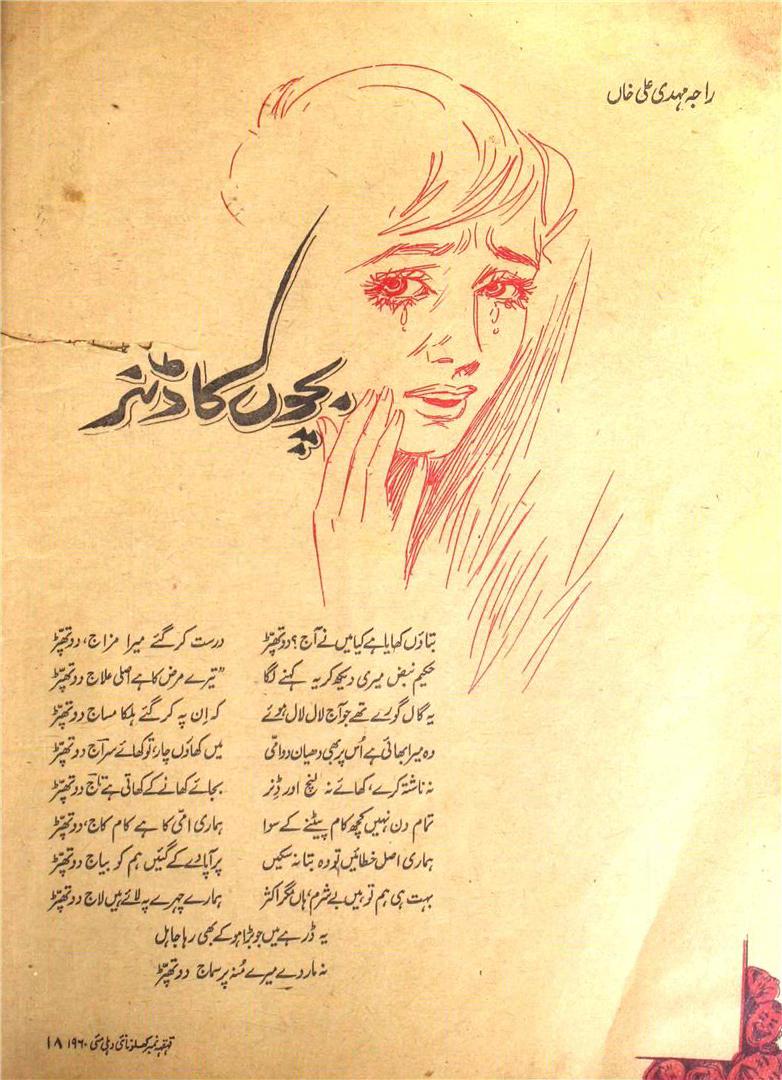 راجہ مہدی علی خاں
بچوں کا ڈنر
بتاؤں کھایا ہے کیا میں نے آج؟ دو تھپڑ درست کر گئے میرا مزاج، دو تھپڑ
حکیم نبض میری دیکھ کر یہ کہنے لگا ”تیرے مرض کا ہے اصلی علاج دو تھپڑ
یہ گال گورے تھے جو آج لال لال ہوئے کہ اِن پہ کر گئے ہلکا مساج دو تھپڑ
وہ میرا بھائی ہے اُس پر بھی دھیان دو امّی میں کھاؤں چار، تو کھائے سراج دو تھپڑ
نہ ناشتہ کرے، کھائے نہ لنچ اور ڈنر بجائے کھانے کے کھاتی ہے تاج دو تھپڑ
تمام دن نہیں کچھ کام پیٹنے کے سوا ہماری امّی کا ہے کام کاج، دو تھپڑ
ہماری اصل خطائیں تو وہ بتا نہ سکیں پر آپا دے کے گئیں ہم کو بیاج دو تھپڑ
بہت ہی ہم تو ہیں بے شرم، ہاں مگر اکثر ہمارے چہرے پہ لائے ہیں لاج دو تھپڑ
یہ ڈر ہے میں جو بڑا ہو کے بھی رہا جاہل
نہ مار دے میرے مُنہ پر سماج دو تھپڑ
قہقہہ نمبر کھلونا نئی دہلی مئی ۱۹۶۰ ۱۸